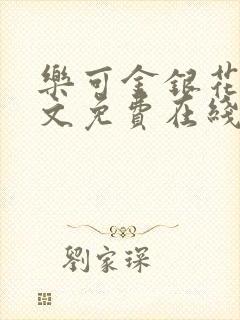 樂可金銀花
文免費在綫
劉家琛